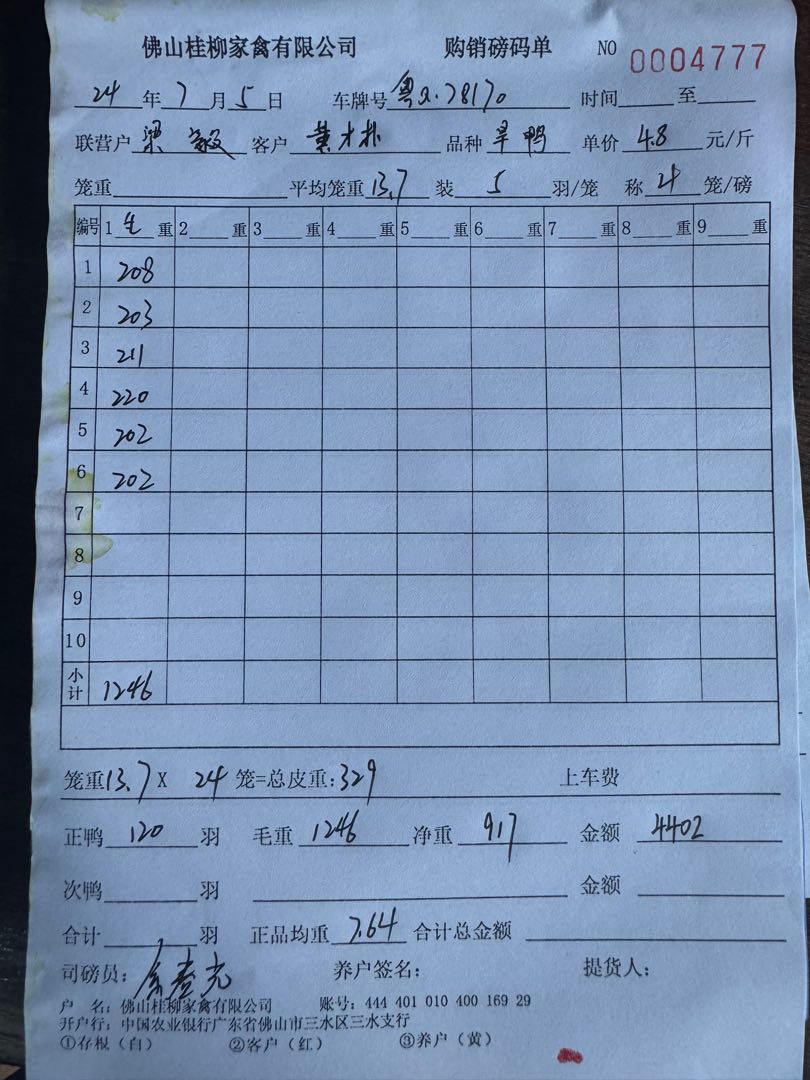 佛山桂柳家禽有限公司 购销磅码单 NO 0004777
24 年 7 月 5 日 车牌号 粤 78170 时间 至
联营户 梁 客户 黄才朴 品种 旱鸭 单价 4.8 元/斤
笼重 平均笼重 13.7 装 5 羽/笼 称 4 笼/磅
编号 1 重 2 重 3 重 4 重 5 重 6 重 7 重 8 重 9 重
1 208
2 203
3 211
4 220
5 202
6 202
7
8
9
10
小计 1246
笼重 13.7 X 24 笼=总皮重: 329 上车费
正鸭 120 羽 毛重 1246 净重 917 金额 4402
次鸭 羽 金额
合计 羽 正品均重 7.64 合计总金额
司磅员: 养户签名: 提货人:
户 名: 佛山桂柳家禽有限公司 账号: 444 401 010 400 169 29
开户行: 中国农业银行广东省佛山市三水区三水支行
①存根(白) ②客户(红) ③养户(黄)